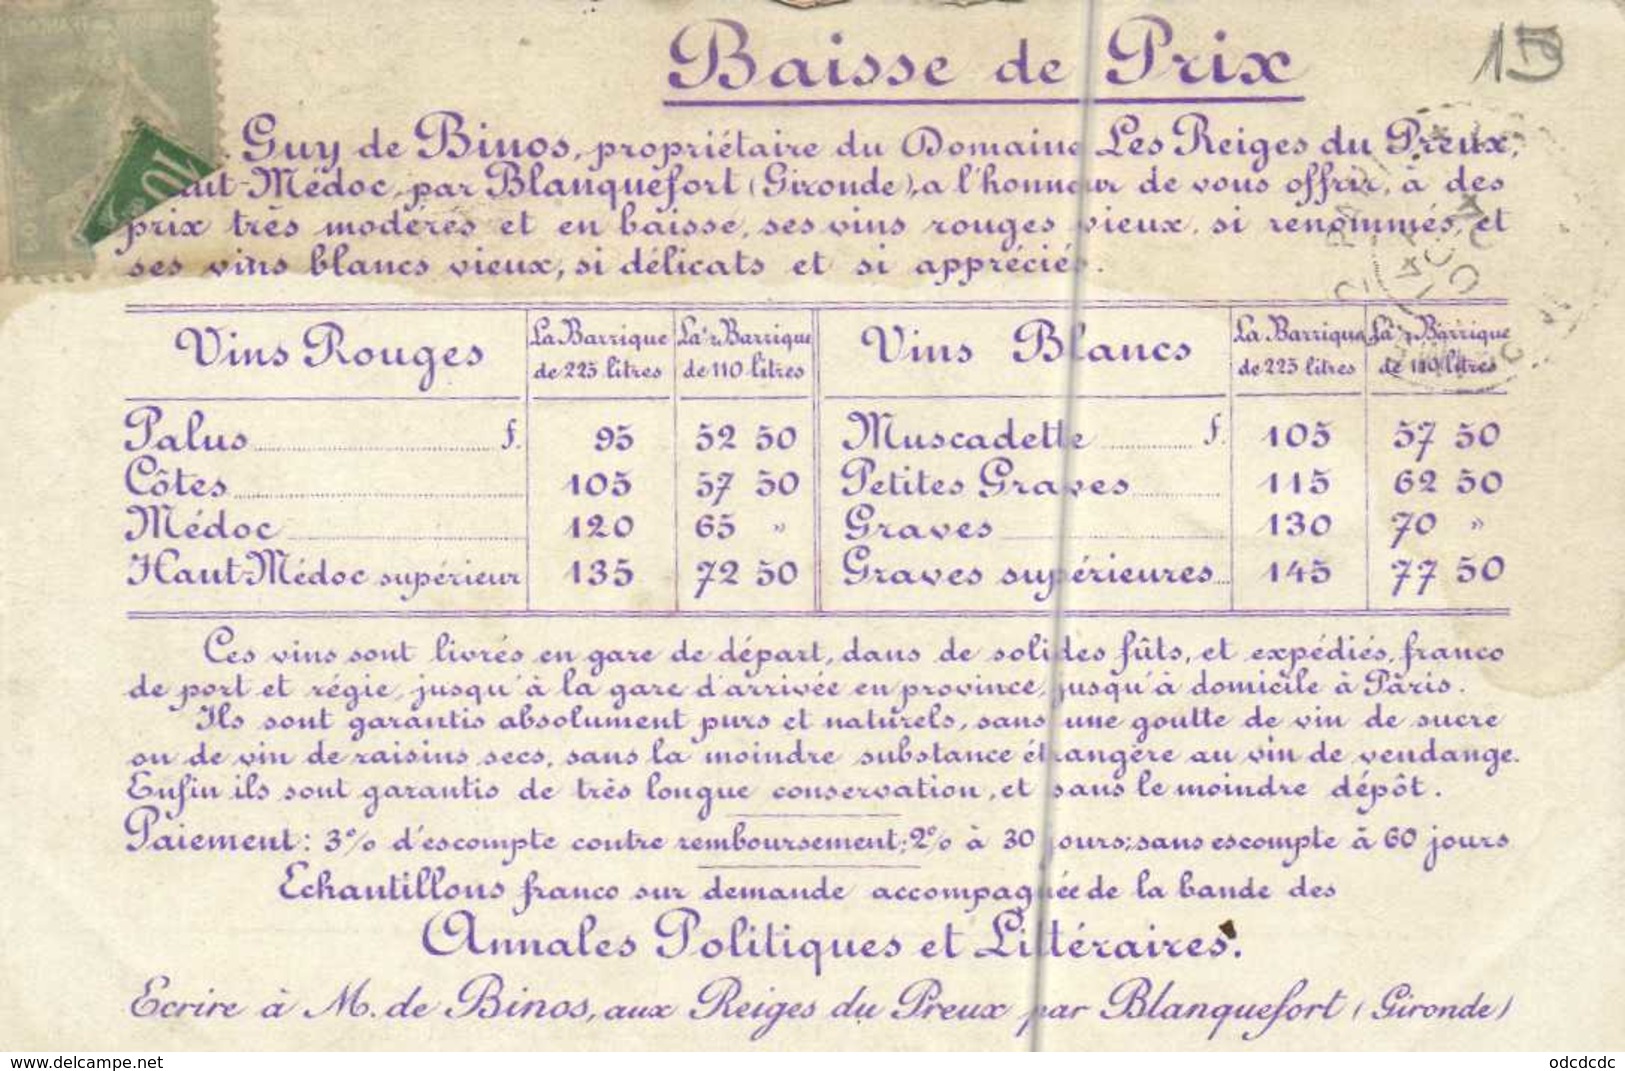 Baisse de Prix
15
Guy de Binos, propriétaire du Domaine Les Reiges du Preux,
aut-Médoc, par Blanquefort (Gironde), a l'honneur de vous offrir, à des
prix très modérés et en baisse, ses vins rouges vieux, si renommés, et
ses vins blancs vieux, si délicats et si appréciés.
Vins Rouges | La Barrique de 225 litres | La ½ Barrique de 110 litres | Vins Blancs | La Barrique de 225 litres | La ½ Barrique de 110 litres
Palus f. 95 | 52 50 | Muscadette f. 105 | 57 50
Côtes 105 | 57 50 | Petites Graves 115 | 62 50
Médoc 120 | 65 » | Graves 130 | 70 »
Haut-Médoc supérieur 135 | 72 50 | Graves supérieures 145 | 77 50
Ces vins sont livrés en gare de départ, dans de solides fûts, et expédiés, franco
de port et régie, jusqu'à la gare d'arrivée en province, jusqu'à domicile à Pâris.
Ils sont garantis absolument purs et naturels, sans une goutte de vin de sucre
ou de vin de raisins secs, sans la moindre substance étrangère au vin de vendange.
Enfin ils sont garantis de très longue conservation, et sans le moindre dépôt.
Paiement: 3% d'escompte contre remboursement; 2% à 30 jours; sans escompte à 60 jours
Echantillons franco sur demande accompagnée de la bande des
Annales Politiques et Littéraires.
Ecrire à M. de Binos, aux Reiges du Preux par Blanquefort (Gironde)
www.delcampe.net
odcdcdc